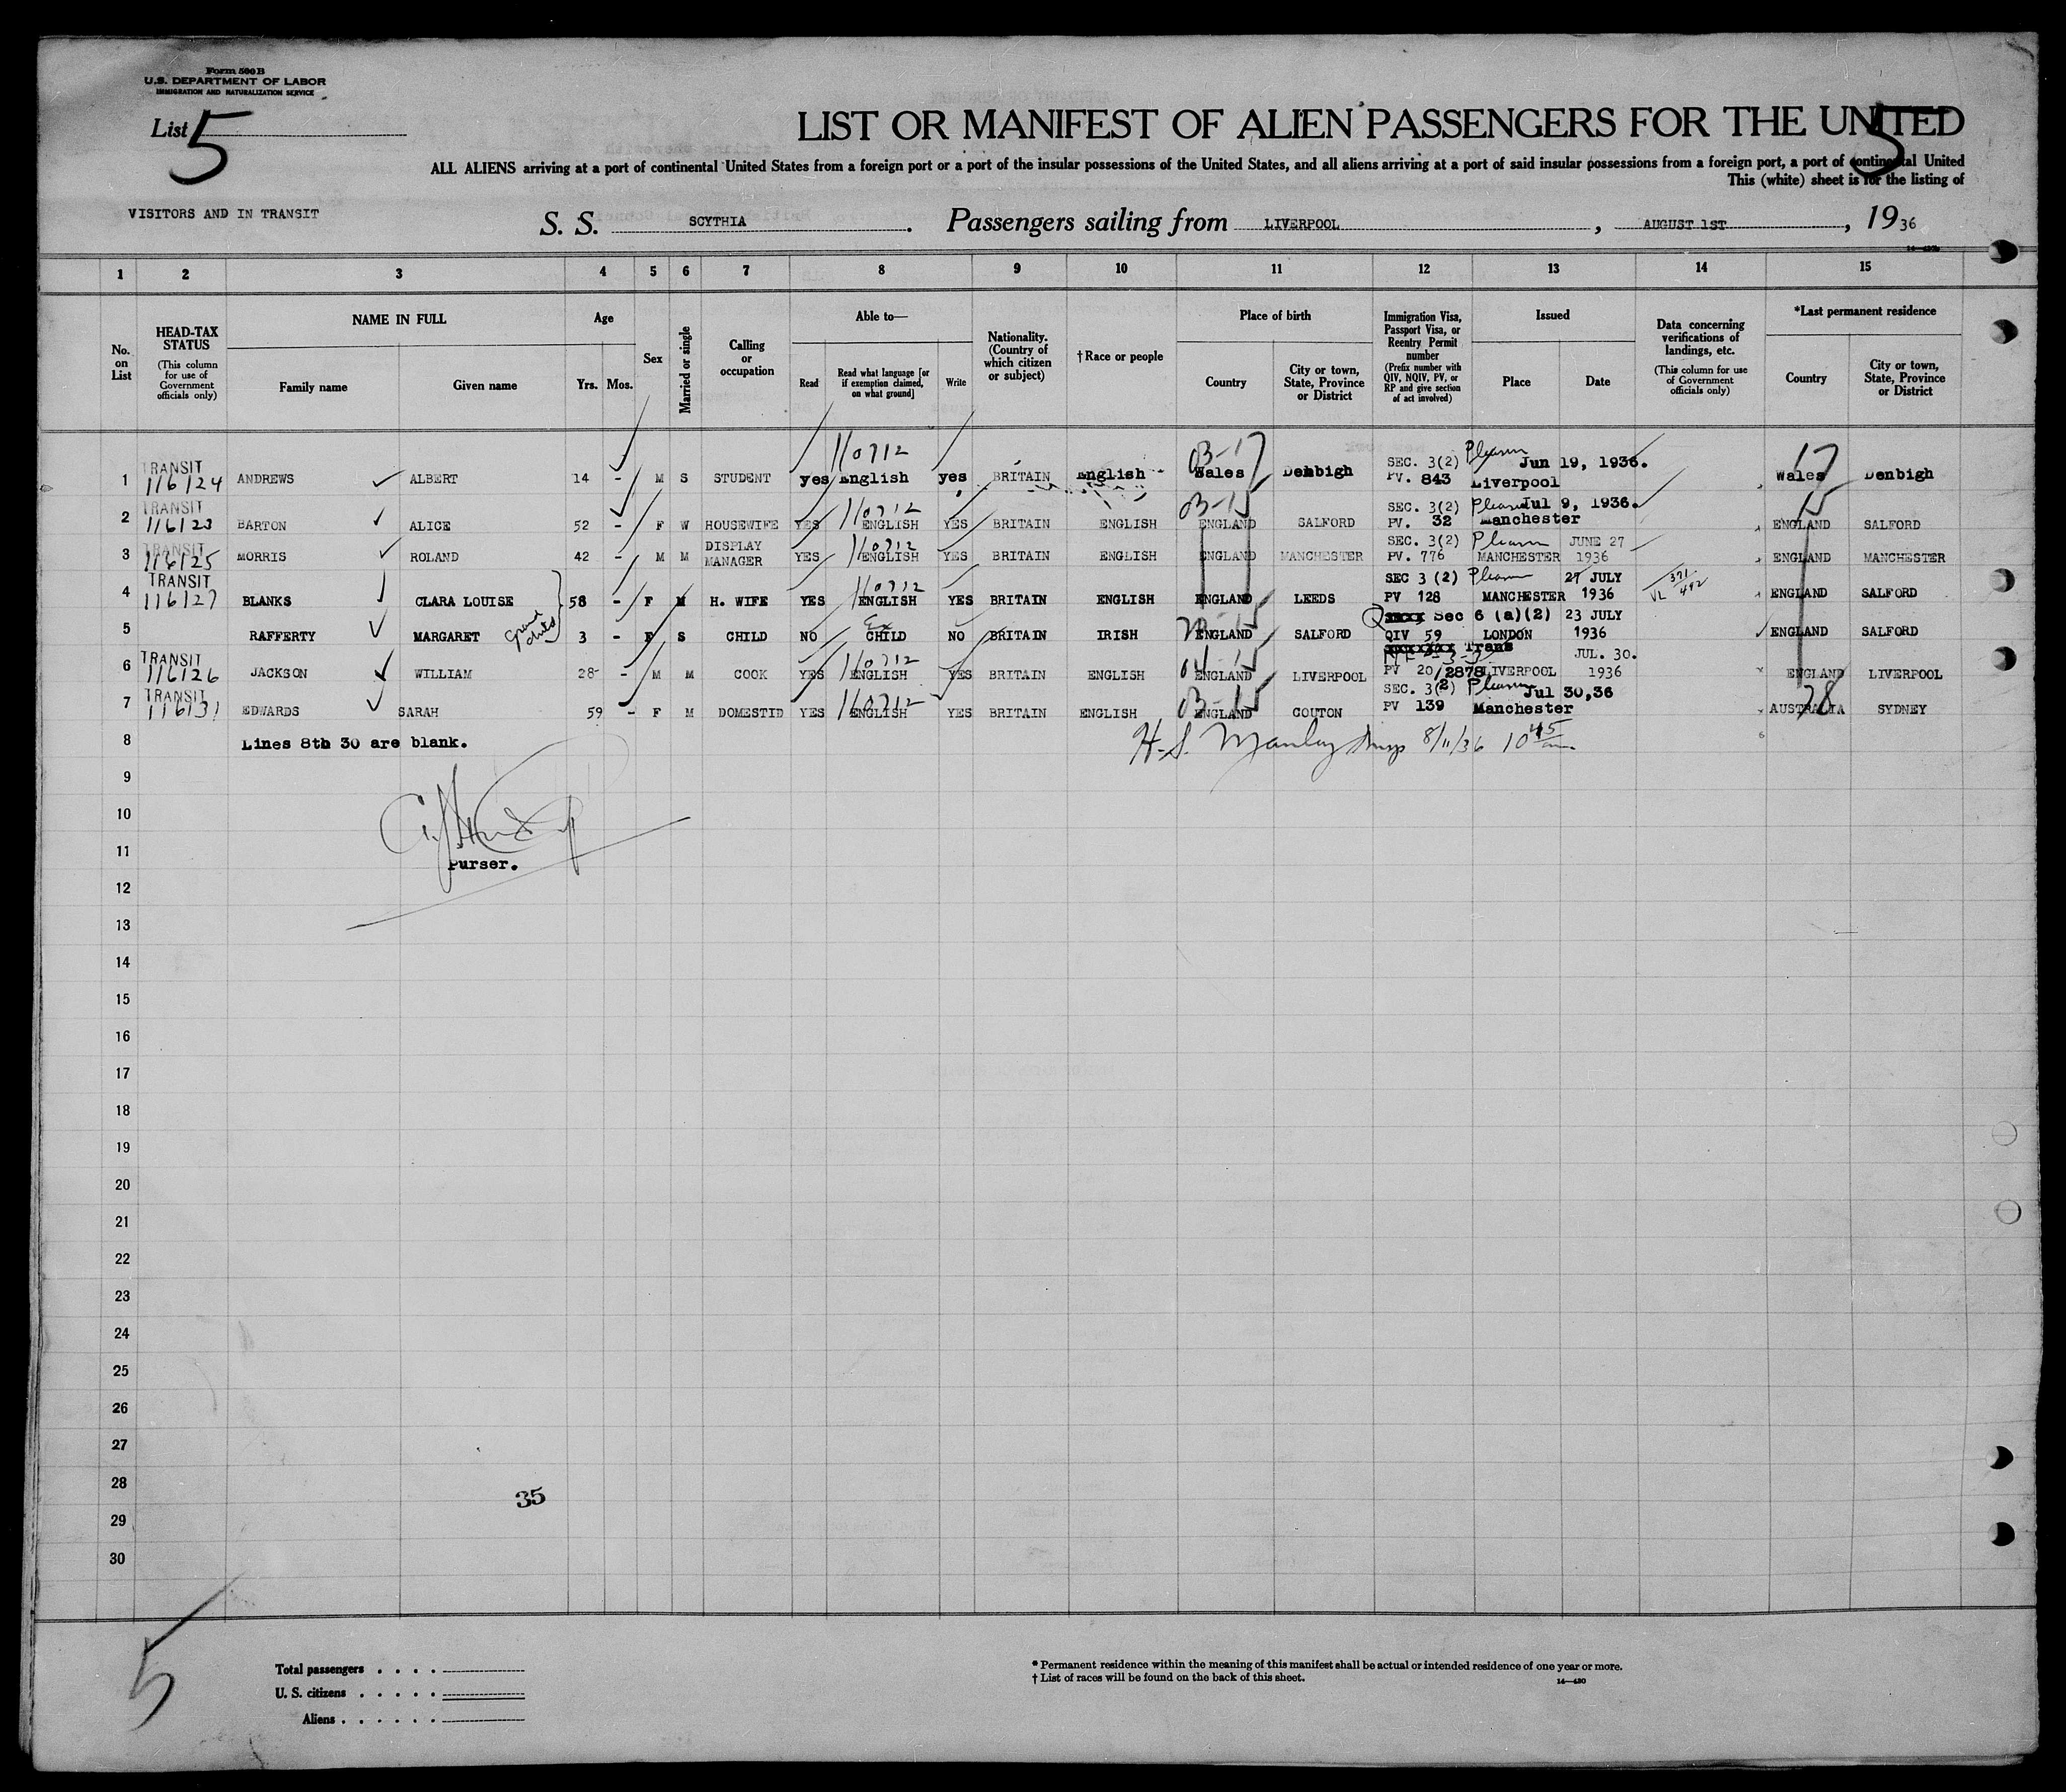 Form 500 B
U.S. DEPARTMENT OF LABOR
IMMIGRATION AND NATURALIZATION SERVICE
List 5
5
LIST OR MANIFEST OF ALIEN PASSENGERS FOR THE UNITED
ALL ALIENS arriving at a port of continental United States from a foreign port or a port of the insular possessions of the United States, and all aliens arriving at a port of said insular possessions from a foreign port, a port of continental United
This (white) sheet is for the listing of
VISITORS AND IN TRANSIT
S. S. SCYTHIA. Passengers sailing from LIVERPOOL, AUGUST 1ST, 1936
1 2 3 4 5 6 7 8 9 10 11 12 13 14 15
No. on List
HEAD-TAX STATUS (This column for use of Government officials only)
NAME IN FULL
Family name
Given name
Age
Yrs. Mos.
Sex
Married or single
Calling or occupation
Able to—
Read
Read what language [or if exemption claimed, on what ground]
Write
Nationality. (Country of which citizen or subject)
†Race or people
Place of birth
Country
City or town, State, Province or District
Immigration Visa, Passport Visa, or Reentry Permit number (Prefix number with QIV, NQIV, PV, or RP and give section of act involved)
Issued
Place
Date
Data concerning verifications of landings, etc. (This column for use of Government officials only)
*Last permanent residence
Country
City or town, State, Province or District
110712 03-17 SEC. 3(2) Pleasure 17
1 TRANSIT 116124 ANDREWS ALBERT 14 - M S STUDENT yes English yes BRITAIN English Wales Denbigh PV. 843 Liverpool Jun 19, 1936. Wales Denbigh
110712 03-15 SEC. 3(2) Pleasure 15
2 TRANSIT 116123 BARTON ALICE 52 - F W HOUSEWIFE YES ENGLISH YES BRITAIN ENGLISH ENGLAND SALFORD PV. 32 Manchester Jul 9, 1936. ENGLAND SALFORD
110712 SEC. 3(2) Pleasure
3 TRANSIT 116125 MORRIS ROLAND 42 - M M DISPLAY MANAGER YES ENGLISH YES BRITAIN ENGLISH ENGLAND MANCHESTER PV. 776 MANCHESTER JUNE 27 1936 ENGLAND MANCHESTER
110712 SEC 3 (2) Pleasure
4 TRANSIT 116127 BLANKS CLARA LOUISE 58 - F M H. WIFE YES ENGLISH YES BRITAIN ENGLISH ENGLAND LEEDS PV 128 MANCHESTER 27 JULY 1936 VL 371/492 ENGLAND SALFORD
Ex Sec 6 (a)(2)
5 RAFFERTY MARGARET 3 - F S CHILD NO CHILD NO BRITAIN IRISH ENGLAND SALFORD QIV 59 LONDON 23 JULY 1936 ENGLAND SALFORD
110712 04-15 Trans
6 TRANSIT 116126 JACKSON WILLIAM 28 - M M COOK YES ENGLISH YES BRITAIN ENGLISH ENGLAND LIVERPOOL PV 20/2878 LIVERPOOL JUL. 30. 1936 ENGLAND LIVERPOOL
110712 03-15 SEC. 3(2) Pleasure 78
7 TRANSIT 116131 EDWARDS SARAH 59 - F M DOMESTID YES ENGLISH YES BRITAIN ENGLISH ENGLAND COUTON PV 139 Manchester Jul 30,36 AUSTRALIA SYDNEY
8 Lines 8th 30 are blank. H.S. Manley Insp 8/11/36 10 45 am
9
10
11
Purser.
12
13
14
15
16
17
18
19
20
21
22
23
24
25
26
27
28
35
29
30
5
Total passengers . . . .
U. S. citizens . . . . .
Aliens . . . . . .
* Permanent residence within the meaning of this manifest shall be actual or intended residence of one year or more.
† List of races will be found on the back of this sheet.
14—430